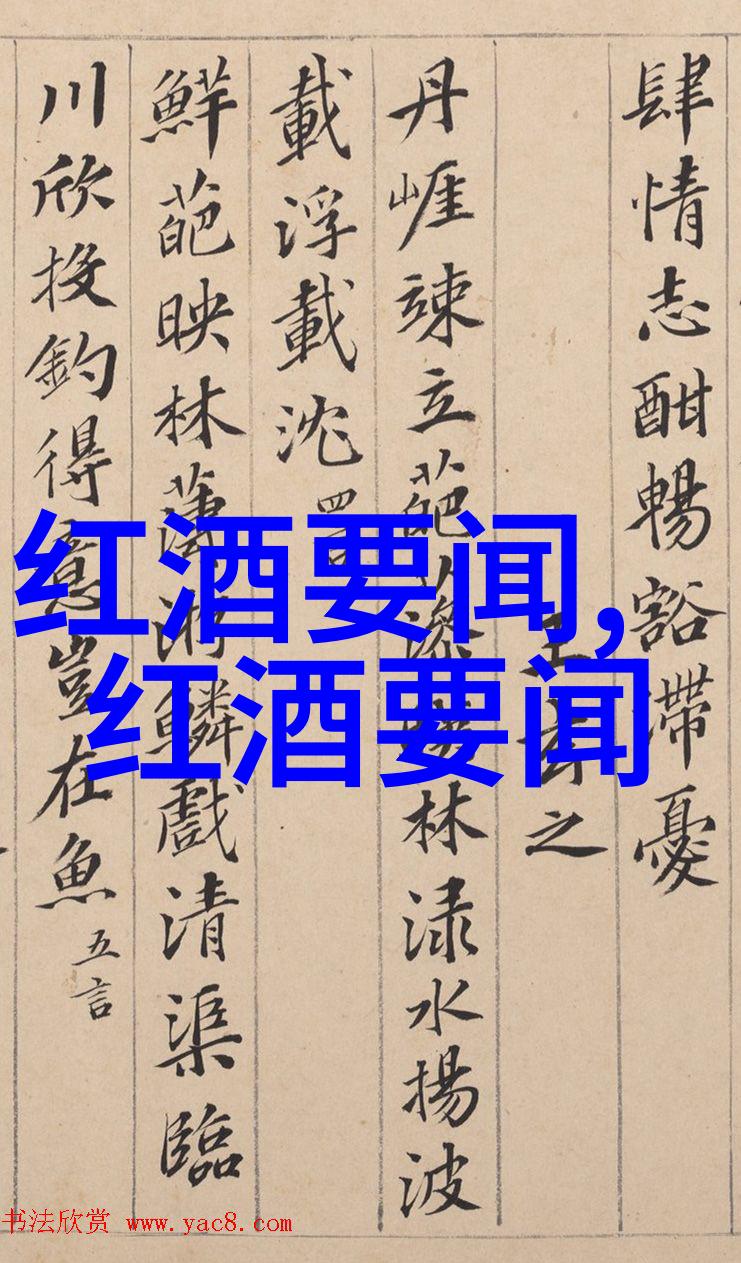 肆情志酣暢豁滯憂
王玄之
丹崕竦立葩藻暎林渌水揚波
載浮載沈 四言
鮮葩映林薄游鱗戲清渠臨
川欣投釣得意豈在魚 五言
红酒要闻,
红酒要闻
书法欣赏 www.yac8.com